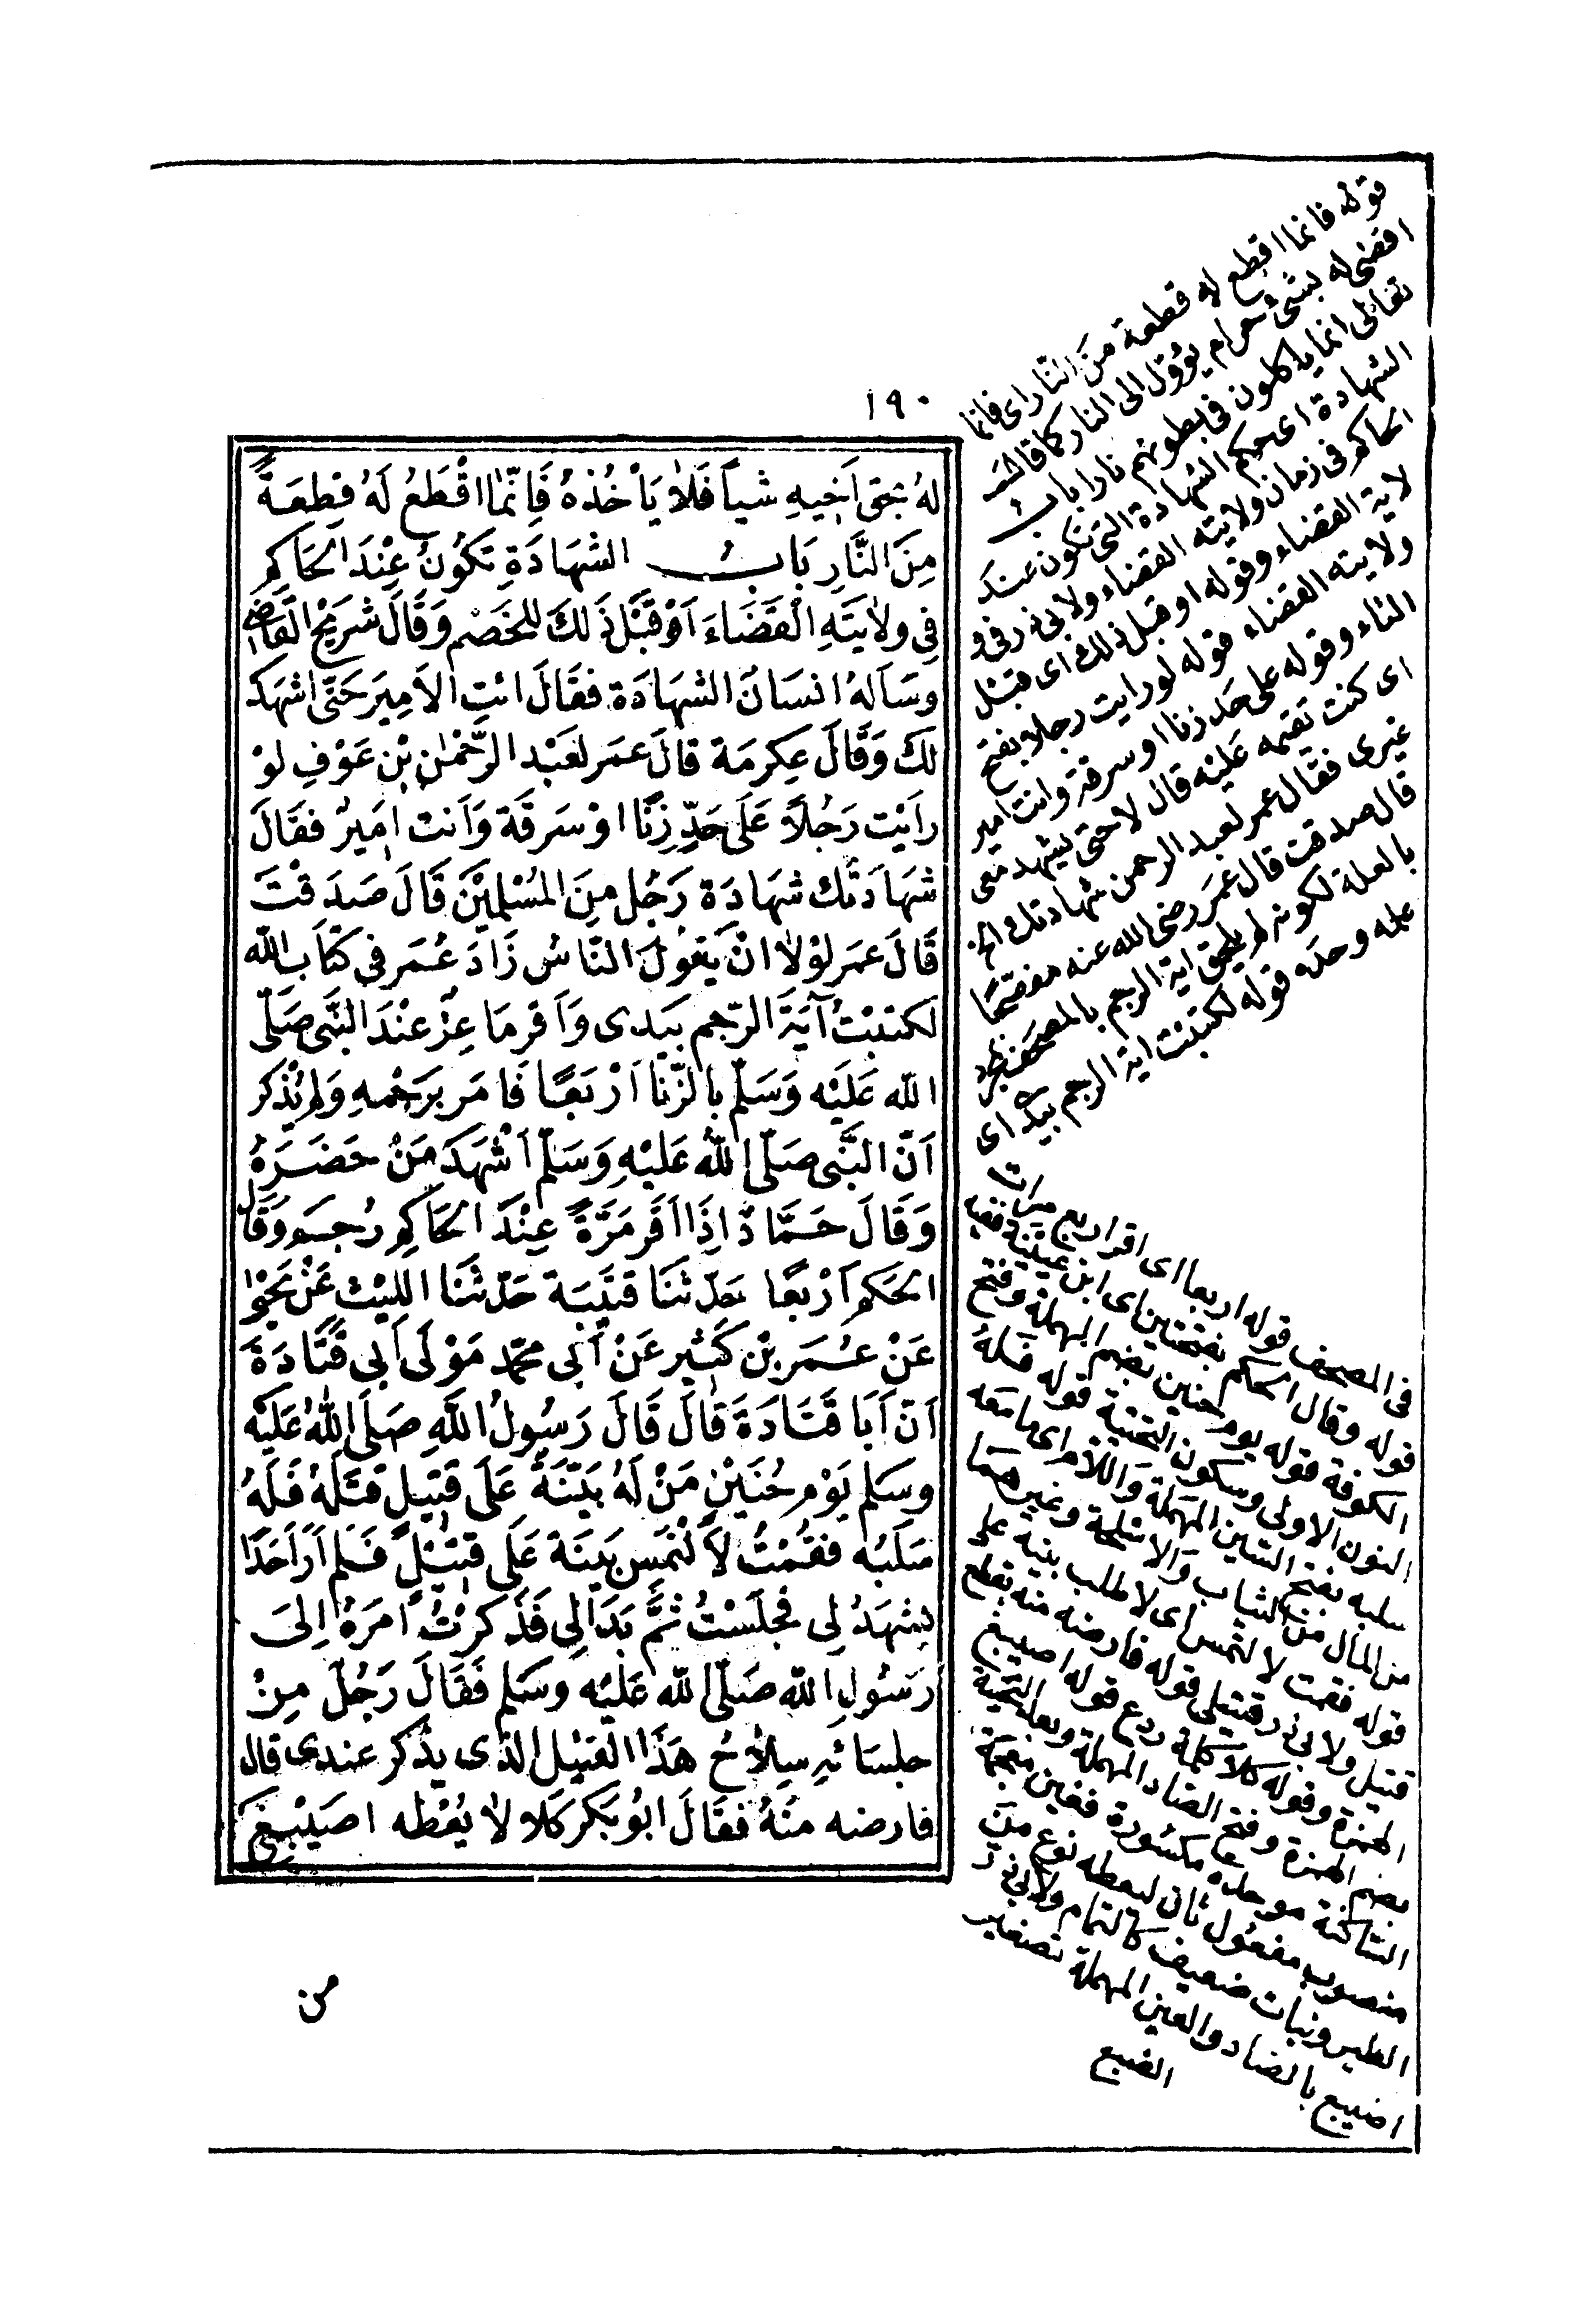 ١٩٠
لَهُ بحَقِّ اَخِيهِ شيأ فَلَا يَأخُذهُ فَاِنَّمَا اقْطَعُ لَهُ قطعَةً
مِنَ النَّارِ بَابُ الشهَادَةِ تَكُونُ عِنْدَ الحَاكِمِ
فِي ولَايَتَهِ القَضَاءَ اَوْ قَبْلَ ذَ لكَ للخَصْم وَقَالَ شرَيْح القَاضِي
وسَألهُ انسَانٌ الشهَادَة فقَالَ ائتِ الاَمِيرَ حَتَّى اشهَدَ
لكَ وَقَالَ عِكرمَة قالَ عمَر لعَبْد الرَّحْمٰنِ بْنِ عَوْفٍ لوْ
رَأيْت رَجُلاً عَلَى حَدِّ زِنًا اوْ سَرقَة وَاَنت امِيرٌ فقَالَ
شهَادَتُك شهَادَة رَجُل مِنَ المُسْلِمِيْنَ قَالَ صَدَقْتَ
قَالَ عمَر لوْلا انْ يَقولَ النَّاسُ زَادَ عُمَر فى كتَابِ الله
لكتبْتُ آيَةَ الرَّجم بيَدى وَاَقر مَاعِزٌ عنْدَ النَّبى صَلّى
الله عَلَيْه وَسَلّم بالزّنَا اَرْبَعًا فَامَر برَجْمهِ وَلم يُذكر
اَنّ النَّبى صَلّى اللهُ عَليْهِ وَسَلّم اَشْهَدَ مَنْ حَضَرَهُ
وَقَالَ حَمَّادٌ اِذَا اَقَر مَرَّةً عِنْدَ الحَاكِم رُجِمَ وَقَال
الحَكم اَرْبعًا حَدّثنَا قتَيْبَة حَدّثنَا الليْث عَنْ يَحْيٰى
عَنْ عُمَر بْن كَثِير عَنْ اَبى محمّد مَوْلَى اَبى قَتَادَةَ
اَنّ اَبَا قَتَادَةَ قَالَ قَالَ رَسُولُ اللَّهِ صَلَى اللهُ عَلَيْه
وسَلم يَوْم حُنَيْنٍ مَنْ لَهُ بَيّنَةٌ عَلَى قَتِيلٍ قتَلهُ فَلهُ
سَلَبُه فقُمْتُ لاَلْتَمسَ بَينَة عَلَى قتيْلٍ فَلم اَرَ اَحَدًا
يشهَدُ لى فجلَسْتُ ثمَّ بَدَا لِى فَذَكرْتُ امرَهُ اِلىَ
رَسُولِ الله صَلّى الله عَليْه وسَلم فَقَالَ رَجُلٌ مِنْ
جلسَائهِ سِلَاحُ هَذَا القتِيْل الذى يذْكر عندى قال
فارضه منهُ فقَالَ ابُو بَكر كَلا لا يُعْطه اصَيْبِغَ
من
قوله فانما اقطع له قطعة من النار اى فانما
اقضى له بشئ حرام يؤول الى النار كما قال الله
تعالى انما ياكلون فى بطونهم نارا باب
الشهادة اى حكم الشهادة التى تكون عند
الحاكم فى زمان ولايته القضاء ولابى ذر فى و
لاية القضاء وقوله او قبل ذلك اى قبل
ولايته القضاء قوله لو رايت رجلا بفتح
التاء وقوله على حد زنا او سرقة وانت امير
اى كنت تقيمه عليه قال لا حتى يشهد معى
غيرى فقال عمر لعبد الرحمن شهادتك الخ
قال صدقت قال عمر رضى الله عنه مفصحا
بالعلة لكونه لم يلحق اية الرجم بالمصحف بمجرد
علمه وحده قوله لكتبت اية الرجم بيدى اى
فى المصحف قوله اربعا اى اقر اربع مرات
قوله وقال الحكم بفتحتين اى ابن عيينة فقيه
الكوفة قوله يوم حنين بضم المهملة وفتح
النون الاولى وسكون التحتية قوله فله
سلبه بفتح السين المهملة واللام اى ما معه
من المال من الثياب والاسلحة وغيرهما
قوله فقمت لالتمس اى لاطلب بينة على
قتيل ولابى ذر قتيلى قوله فارضه منه بقطع
الهمزة وقوله كلا كلمة ردع قوله اصيبغ
بضم الهمزة وفتح الصاد المهملة وبعد التحتية
الساكنة موحدة مكسورة فغين معجمة
منصوب مفعول ثان ليعطه نوع من
الطير ونبات ضعيف كالثمام ولابى ذر
اضيبع بالضاد والعين المهملة تصغير
الضبع